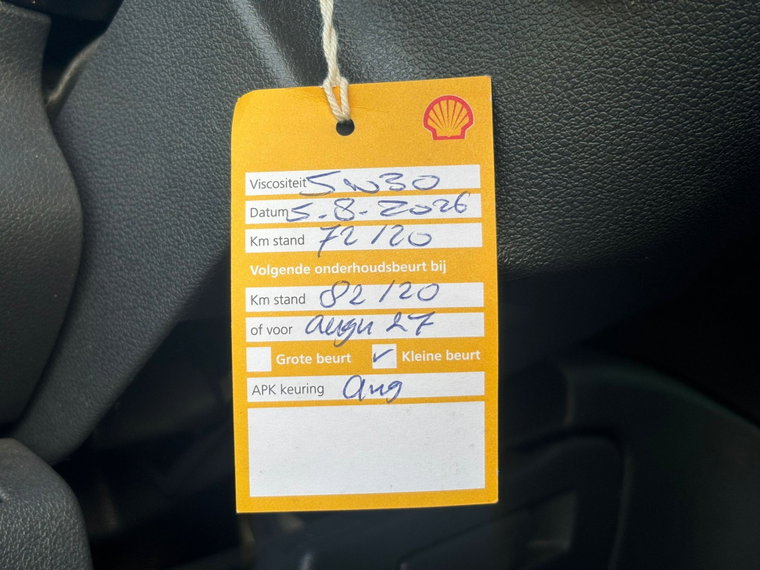 Viscositeit 5w30
Datum 5-8-2026
Km stand 72120
Volgende onderhoudsbeurt bij
Km stand 82120
of voor augu 27
Grote beurt ✓ Kleine beurt
APK keuring aug